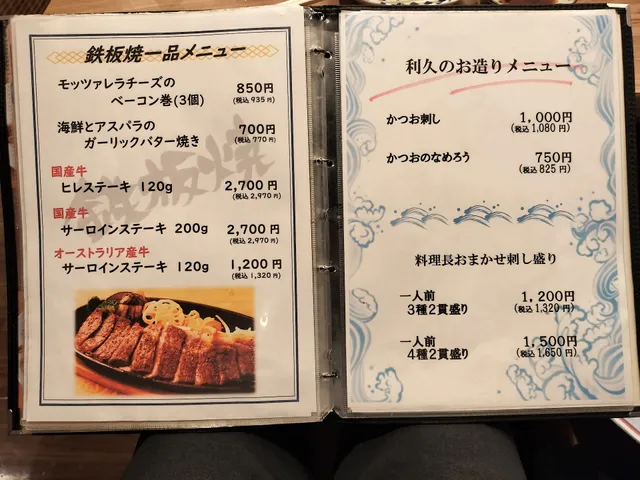 鉄板焼一品メニュー
モッツァレラチーズの 850円
ベーコン巻(3個) (税込 935円)
海鮮とアスパラの 700円
ガーリックバター焼き (税込 770円)
国産牛
ヒレステーキ 120g 2,700円
(税込 2,970円)
国産牛
サーロインステーキ 200g 2,700円
(税込 2,970円)
オーストラリア産牛
サーロインステーキ 120g 1,200円
(税込 1,320円)
鉄板焼
利久のお造りメニュー
かつお刺し 1,000円
(税込 1,080円)
かつおのなめろう 750円
(税込 825円)
料理長おまかせ刺し盛り
一人前 1,200円
3種2貫盛り (税込 1,320円)
一人前 1,500円
4種2貫盛り (税込 1,650円)